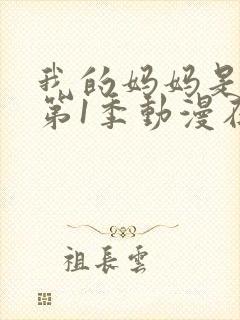 我的妈妈是
第1季動漫在
祖長雲